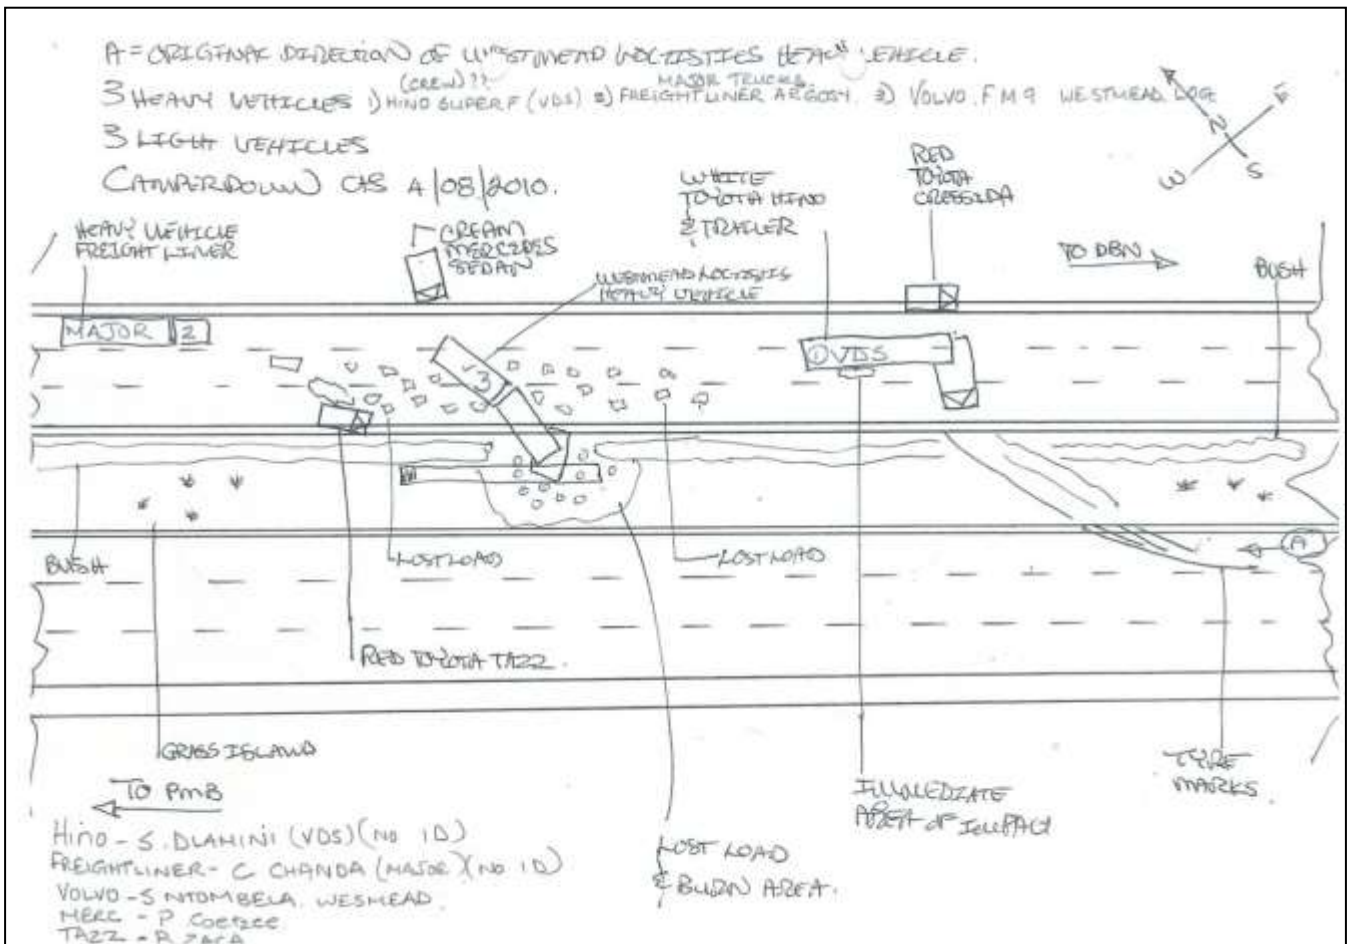 A = ORIGINAL DIRECTION OF WESTMEAD LOGTISTICS HEAVY VEHICLE.
(CREW)??
MAJOR TRUCKS
3 HEAVY VEHICLES 1) HINO SUPER F (VDS) 2) FREIGHTLINER ARGOSY. 3) VOLVO. FM9 WESTMEAD LOG
3 LIGHT VEHICLES
CAMPERDOWN CAS 4/08/2010.
N
E
W
S
HEAVY VEHICLE
FREIGHT LINER
CREAM
MERCEDES
SEDAN
WHITE
TOYOTA HINO
& TRAILER
RED
TOYOTA
CRESSIDA
WESTMEAD LOGTISTIS
HEAVY VEHICLE
TO DBN
BUSH
MAJOR 2
3
1 VDS
A
BUSH
LOST LOAD
LOST LOAD
RED TOYOTA TAZZ.
GRASS ISLAND
TO PMB
IMMEDIATE
AREA OF IMPACT
TYRE
MARKS.
LOST LOAD
& BURN AREA.
Hino - S. DLAMINI (VDS) (NO ID)
FREIGHTLINER - C CHANDA (MAJOR) (NO ID)
VOLVO - S NTOMBELA. WESMEAD.
MERC - P Coetzee
TAZZ - R